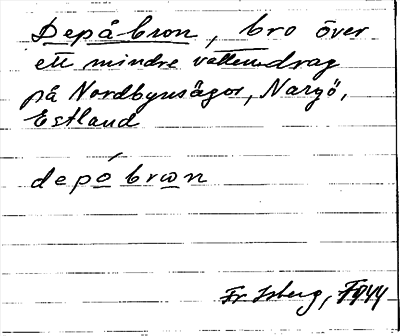 Depåbron, bro över
ett mindre vattendrag
på Nordbynsägor, Nargö,
Estland
depó brωn
Fr Isberg, 1944